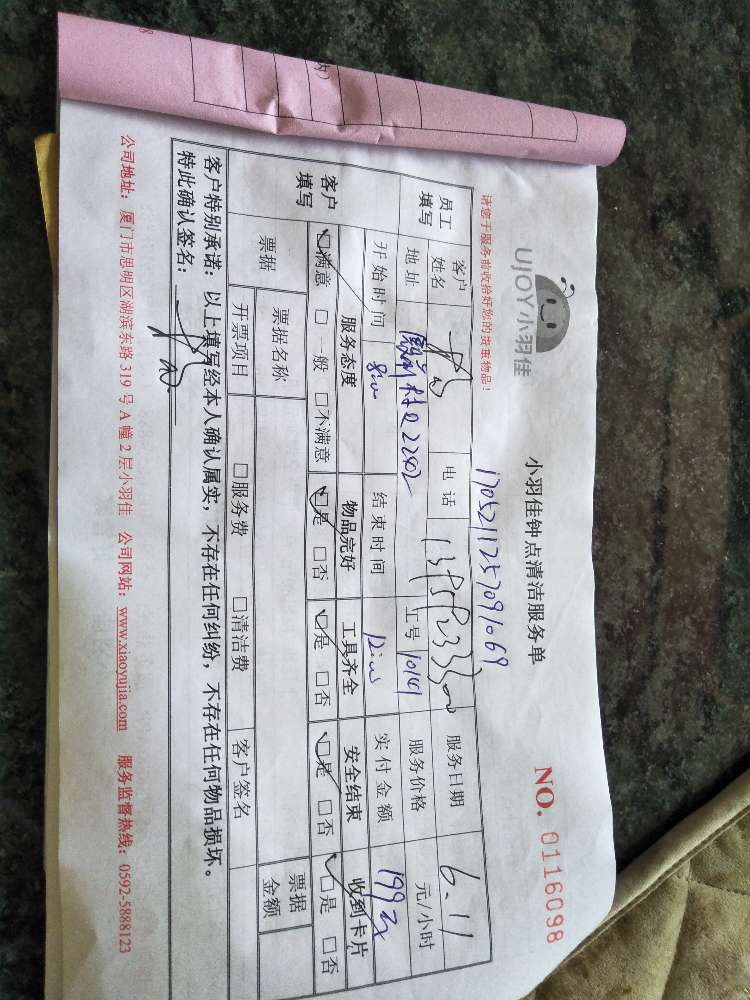 UJOY小羽佳
小羽佳钟点清洁服务单
NO. 0116098
请您于服务前收拾好您的贵重物品!
1705211257091069
员工填写
客户姓名
电话
服务日期 6.11
地址
2202
工号 10141
服务价格
元/小时
开始时间
结束时间
实付金额 199
客户填写
服务态度
物品完好
工具齐全
安全结束
收到卡片
□满意 □一般 □不满意
□是 □否
□是 □否
□是 □否
□是 □否
票据
票据名称
票据金额
开票项目
□服务费
□清洁费
客户签名
客户特别承诺:以上填写经本人确认属实,不存在任何纠纷,不存在任何物品损坏。
特此确认签名:
公司地址:厦门市思明区湖滨东路 319 号 A 幢 2 层小羽佳 公司网站:www.xiaoyujia.com 服务监督热线:0592-5888123